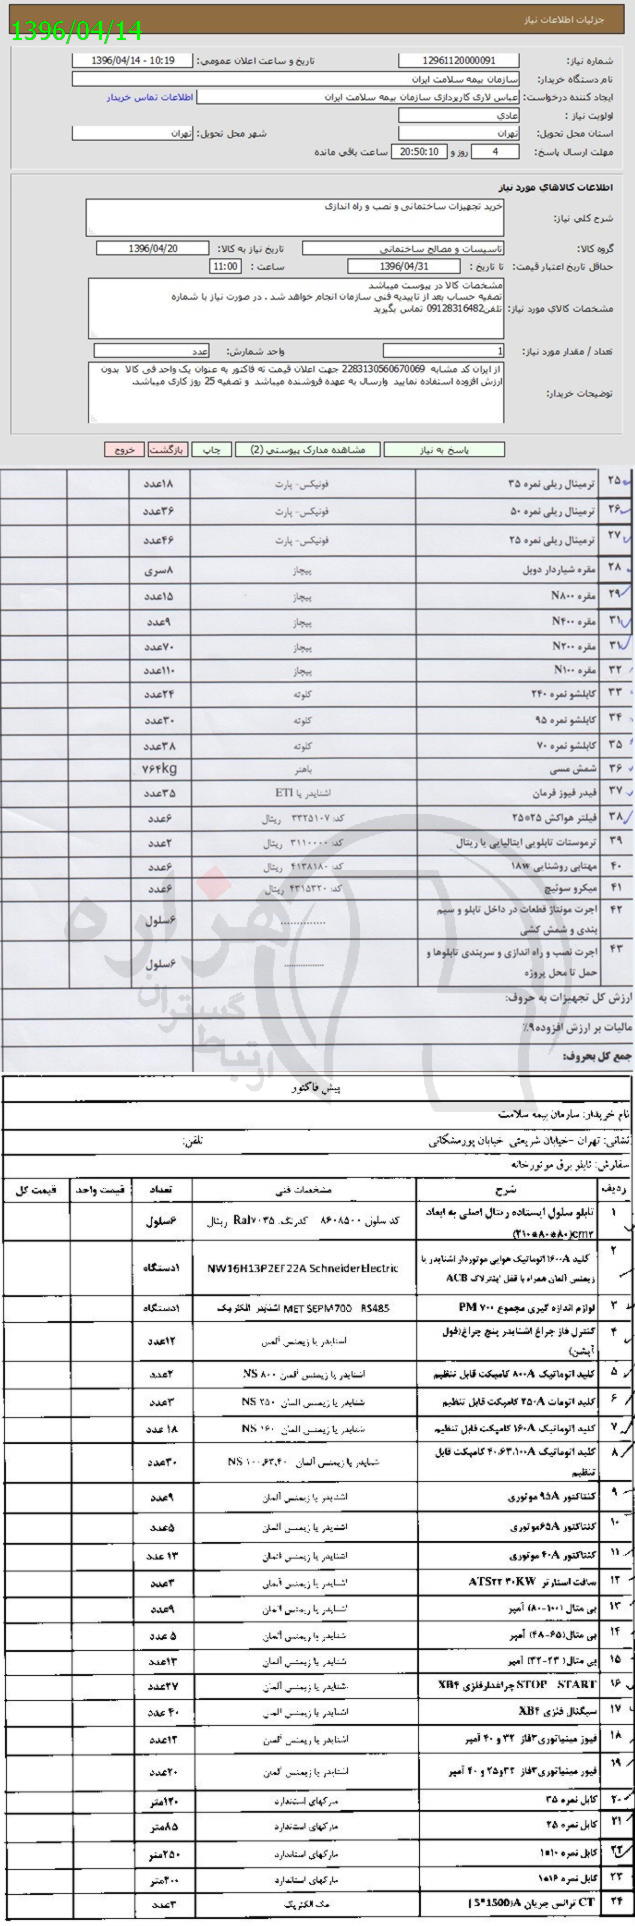 1396/04/14
جزئیات اطلاعات نیاز
شماره نیاز: 12961120000091 تاریخ و ساعت اعلان عمومی: 1396/04/14 - 10:19
نام دستگاه خریدار: سازمان بیمه سلامت ایران
ایجاد کننده درخواست: عباس لاری کارپردازی سازمان بیمه سلامت ایران اطلاعات تماس خریدار
اولویت نیاز : عادی
استان محل تحویل: تهران شهر محل تحویل: تهران
مهلت ارسال پاسخ: 4 روز و 20:50:10 ساعت باقی مانده
اطلاعات کالاهای مورد نیاز
شرح کلی نیاز: خرید تجهیزات ساختمانی و نصب و راه اندازی
گروه کالا: تاسیسات و مصالح ساختمانی تاریخ نیاز به کالا: 1396/04/20
حداقل تاریخ اعتبار قیمت: تا تاریخ : 1396/04/31 ساعت : 11:00
مشخصات کالا در پیوست میباشد
تصفیه حساب بعد از تاییدیه فنی سازمان انجام خواهد شد . در صورت نیاز با شماره
مشخصات کالای مورد نیاز: تلفن09128316482 تماس بگیرید
تعداد / مقدار مورد نیاز: 1 واحد شمارش: عدد
از ایران کد مشابه 2283130560670069 جهت اعلان قیمت ته فاکتور به عنوان یک واحد فی کالا بدون
توضیحات خریدار: ارزش افزوده استفاده نمایید وارسال به عهده فروشنده میباشد و تصفیه 25 روز کاری میباشد.
پاسخ به نیاز مشاهده مدارک پیوستی (2) چاپ بازگشت خروج
۲۵ ترمینال ریلی نمره ۳۵ فونیکس- پارت ۱۸عدد
۲۶ ترمینال ریلی نمره ۵۰ فونیکس- پارت ۳۶عدد
۲۷ ترمینال ریلی نمره ۲۵ فونیکس- پارت ۴۶عدد
۲۸ مقره شیاردار دوبل پیچاز ۸سری
۲۹ مقره N۸۰۰ پیچاز ۱۵عدد
۳۱ مقره N۴۰۰ پیچاز ۹عدد
۳۱ مقره N۲۰۰ پیچاز ۷۰عدد
۳۲ مقره N۱۰۰ پیچاز ۱۱۰عدد
۳۳ کابلشو نمره ۲۴۰ کلوته ۲۴عدد
۳۴ کابلشو نمره ۹۵ کلوته ۳۰عدد
۳۵ کابلشو نمره ۷۰ کلوته ۳۸عدد
۳۶ شمش مسی باهنر ۷۶۴kg
۳۷ فیدر فیوز فرمان اشنایدر یا ETI ۳۵عدد
۳۸ فیلتر هواکش ۲۵*۲۵ کد: ۳۳۲۵۱۰۷ ریتال ۶عدد
۳۹ ترموستات تابلویی ایتالیایی یا ریتال کد: ۳۱۱۰۰۰۰ ریتال ۲عدد
۴۰ مهتابی روشنایی ۱۸w کد: ۴۱۳۸۱۸۰ ریتال ۶عدد
۴۱ میکرو سوئیچ کد: ۴۳۱۵۳۲۰ ریتال ۶عدد
۴۲ اجرت مونتاژ قطعات در داخل تابلو و سیم ............... ۶سلول
بندی و شمش کشی
۴۳ اجرت نصب و راه اندازی و سربندی تابلوها و ............... ۶سلول
حمل تا محل پروژه
ارزش کل تجهیزات به حروف:
مالیات بر ارزش افزوده۹٪
جمع کل بحروف:
هزاره
گستران
ارتباط
پیش فاکتور
نام خریدار: سازمان بیمه سلامت
نشانی: تهران -خیابان شریعتی خیابان پورمشکانی تلفن:
سفارش: تابلو برق موتورخانه
ردیف شرح مشخصات فنی تعداد قیمت واحد قیمت کل
۱ تابلو سلول ایستاده ریتال اصلی به ابعاد کد سلول ۸۶۰۸۵۰۰ کدرنگ Ral۷۰۳۵ ریتال ۶سلول
(۲۱۰*۸۰*۸۰)cm۳
۲ کلید ۱۶۰۰A اتوماتیک هوایی موتوردار اشنایدر یا NW16H13P2EF22A SchneiderElectric ۱دستگاه
زیمنس آلمان همراه با قفل اینترلاک ACB
۳ لوازم اندازه گیری مجموع PM ۷۰۰ METSEPM700 RS485 اشنایدر الکتریک ۱دستگاه
۴ کنترل فاز چراغ اشنایدر پنج چراغ(فول اشنایدر یا زیمنس آلمان ۱۲عدد
آپشن)
۵ کلید اتوماتیک ۸۰۰A کامپکت قابل تنظیم اشنایدر یا زیمنس آلمان NS ۸۰۰ ۲عدد
۶ کلید اتومات ۲۵۰A کامپکت قابل تنظیم اشنایدر یا زیمنس آلمان NS ۲۵۰ ۳عدد
۷ کلید اتوماتیک ۱۶۰A کامپکت قابل تنظیم اشنایدر یا زیمنس آلمان NS ۱۶۰ ۱۸ عدد
۸ کلید اتوماتیک ۴۰،۶۳،۱۰۰A کامپکت قابل اشنایدر یا زیمنس آلمان NS ۱۰۰،۶۳،۴۰ ۳۰عدد
تنظیم
۹ کنتاکتور ۹۵A موتوری اشنایدر یا زیمنس آلمان ۹عدد
۱۰ کنتاکتور ۶۵A موتوری اشنایدر یا زیمنس آلمان ۵عدد
۱۱ کنتاکتور ۴۰A موتوری اشنایدر یا زیمنس آلمان ۱۳ عدد
۱۲ سافت استارتر ATS۲۲ ۳۰KW اشنایدر یا زیمنس آلمان ۳عدد
۱۳ بی متال (۱۰۰-۸۰) آمپر اشنایدر یا زیمنس آلمان ۹عدد
۱۴ بی متال(۶۵-۴۸) آمپر اشنایدر یا زیمنس آلمان ۵ عدد
۱۵ بی متال( ۳۲-۲۳) آمپر اشنایدر یا زیمنس آلمان ۱۳عدد
۱۶ STOP START چراغدارفلزی XB۴ اشنایدر یا زیمنس آلمان ۲۷عدد
۱۷ سیگنال فلزی XB۴ اشنایدر یا زیمنس آلمان ۴۰ عدد
۱۸ فیوز مینیاتوری۳فاز ۳۲ و ۴۰ آمپر اشنایدر یا زیمنس آلمان ۱۳عدد
۱۹ فیوز مینیاتوری۳فاز ۳۲و۲۵ و ۴۰ آمپر اشنایدر یا زیمنس آلمان ۲۰عدد
۲۰ کابل نمره ۳۵ مارکهای استاندارد ۱۲۰متر
۲۱ کابل نمره ۲۵ مارکهای استاندارد ۸۵متر
۲۲ کابل نمره ۱۰*۱ مارکهای استاندارد ۲۵۰متر
۲۳ کابل نمره ۱۶*۱ مارکهای استاندارد ۲۰۰متر
۲۴ CT ترانس جریان (5*1500)A مک الکتریک ۳عدد